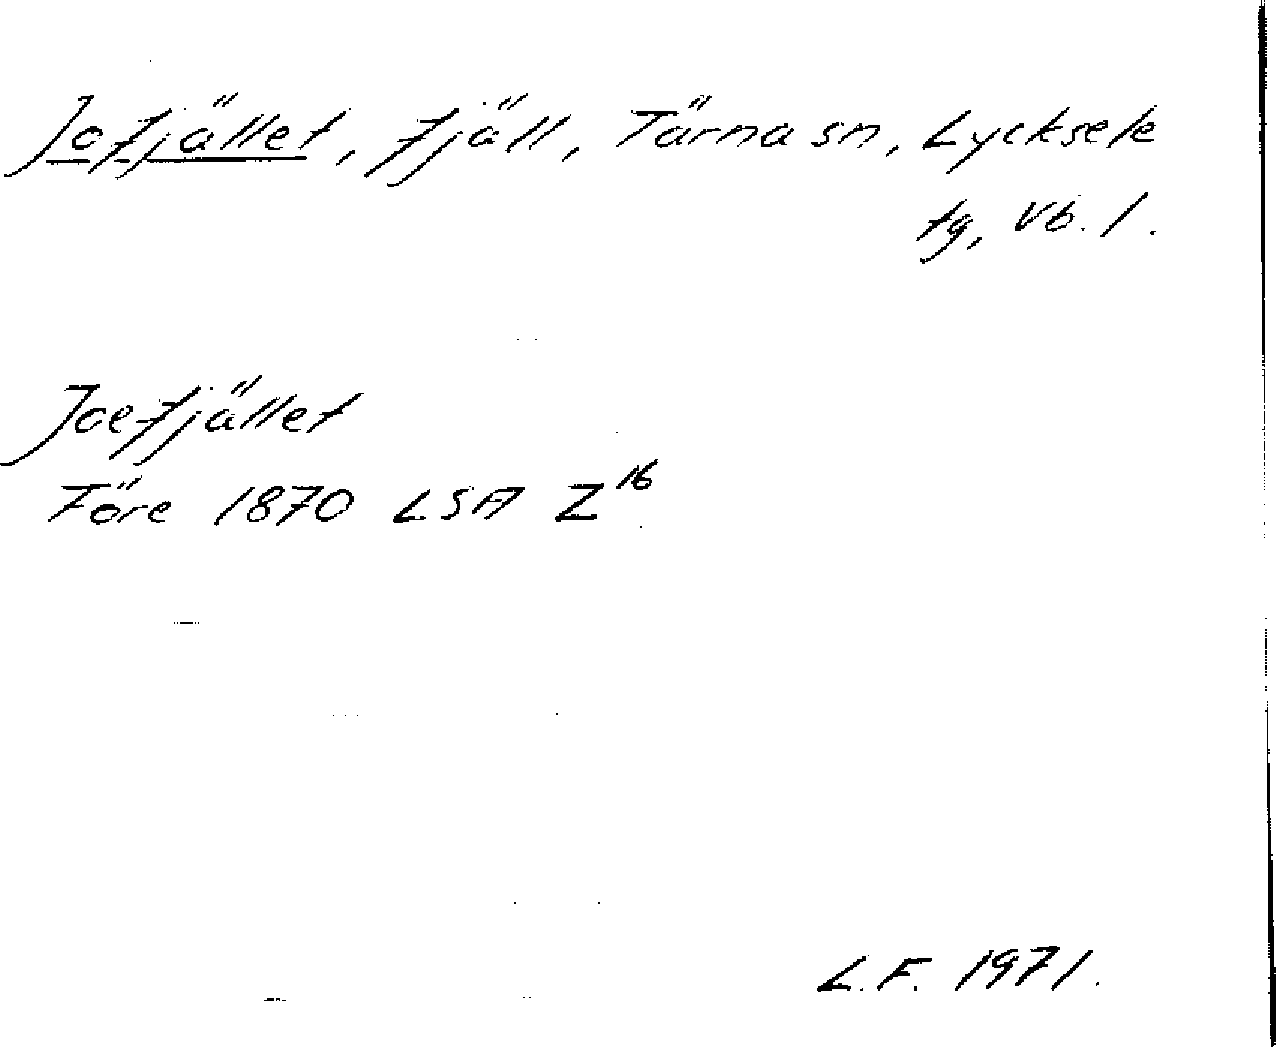 Jofjället, fjäll, Tärna sn, Lycksele
tg, Vb. l.
Joefjället
Före 1870 LSA Z16
L.F. 1971.